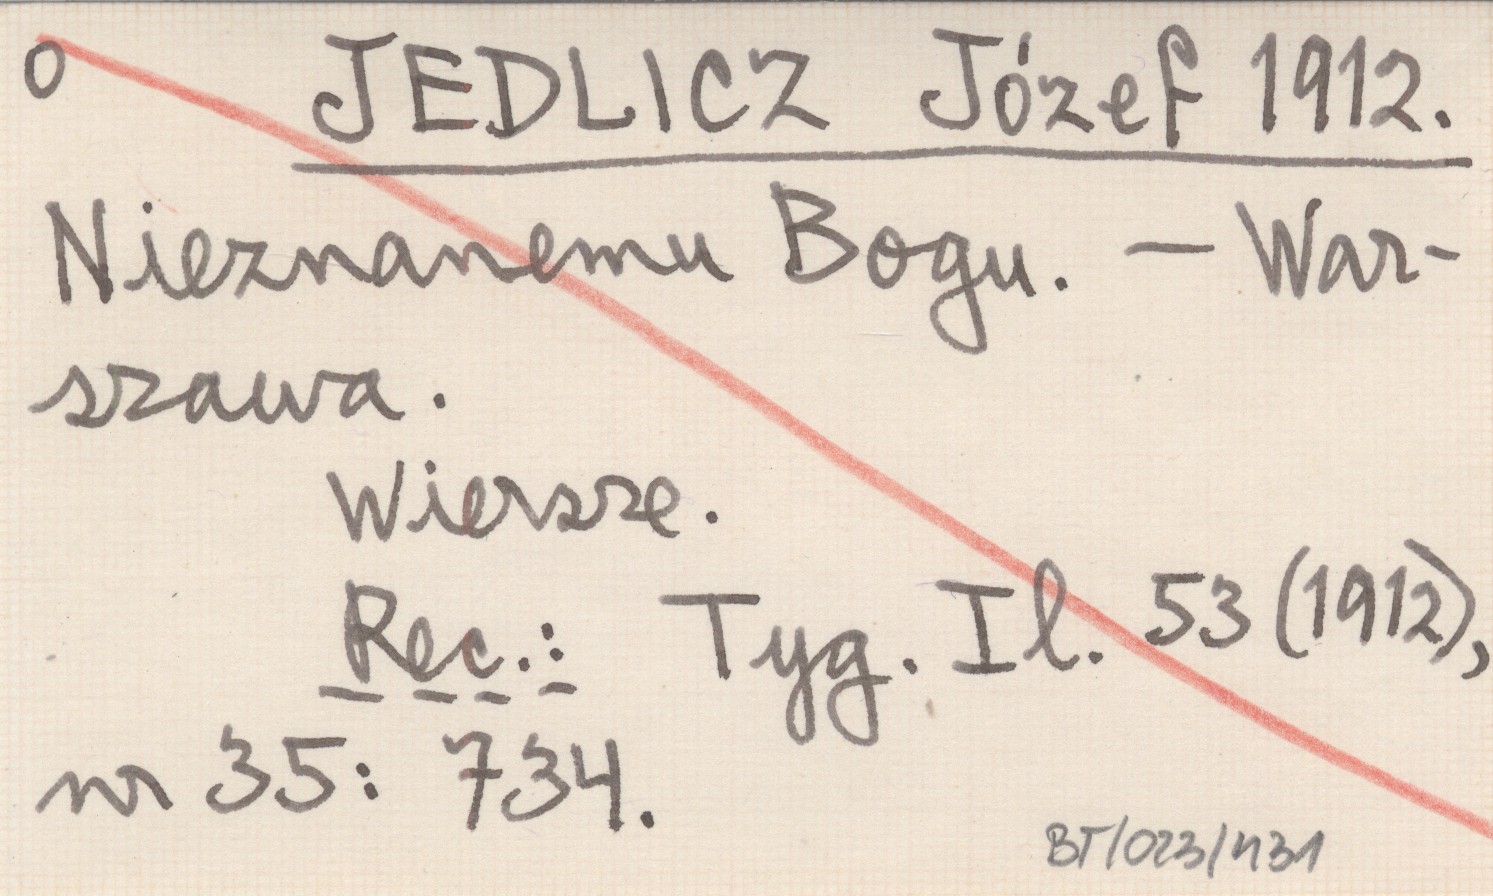 o JEDLICZ Józef 1912.
Nieznanemu Bogu. — War-
szawa.
Wiersze.
Rec.: Tyg. Il. 53 (1912),
nr 35: 734.
BT/023/431